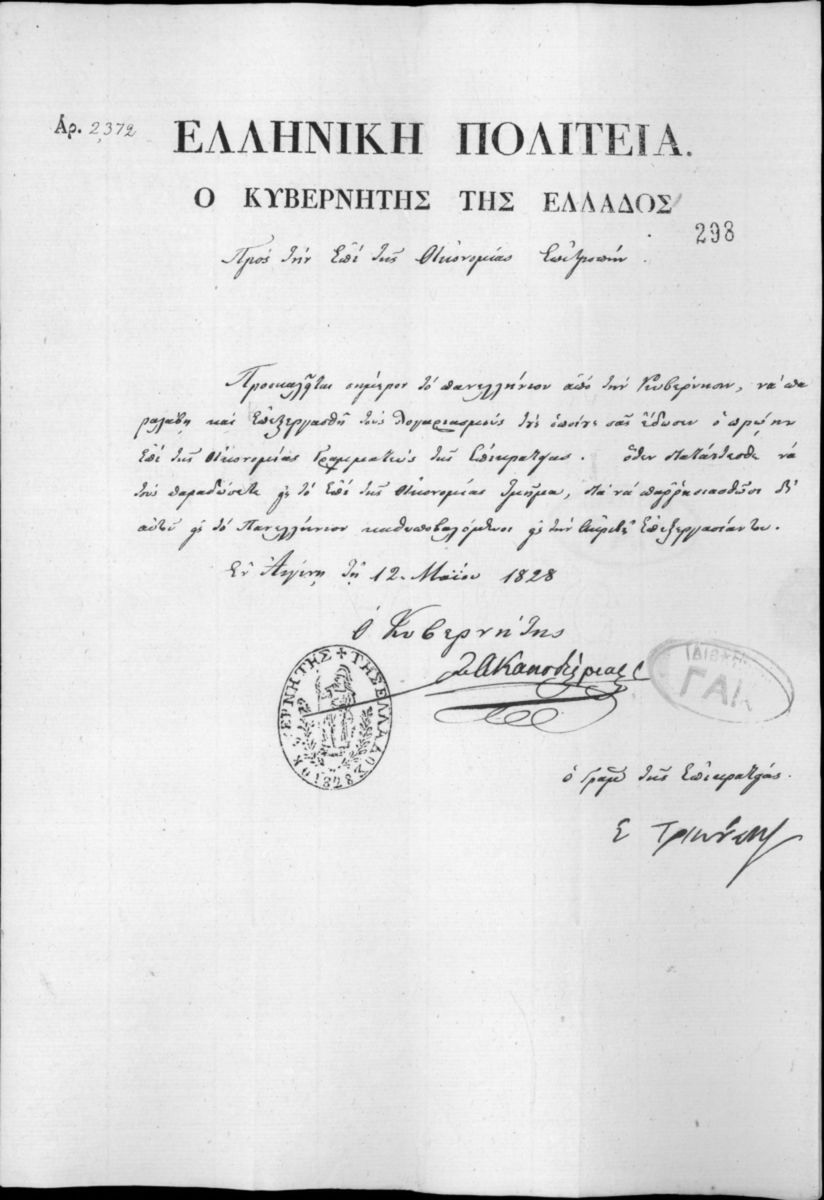 Ἀρ. 2372
ΕΛΛΗΝΙΚΗ ΠΟΛΙΤΕΙΑ.
Ο ΚΥΒΕΡΝΗΤΗΣ ΤΗΣ ΕΛΛΑΔΟΣ
298
Πρὸς τὴν ἐπὶ τῆς Οἰκονομίας Ἐπιτροπήν.
Προσκαλεῖται σήμερον τὸ πανελλήνιον ἀπὸ τὴν Κυβέρνησιν, νὰ πα
ραλάβῃ καὶ ἐπεξεργασθῇ τοὺς λογαριασμοὺς τοὺς ὁποίους σᾶς ἔδωσεν ὁ πρώην
ἐπὶ τῆς Οἰκονομίας Γραμματεὺς τῆς Ἐπικρατείας. ὅθεν διατάττεσθε νὰ
τοὺς παραδώσετε εἰς τὸ ἐπὶ τῆς Οἰκονομίας τμῆμα, διὰ νὰ παρρησιασθῶσι δι'
αὐτοῦ εἰς τὸ Πανελλήνιον καθυποβαλόμενοι εἰς τὴν ἀκριβῆ ἐπεξεργασίαν του.
Ἐν Αἰγίνῃ τῇ 12. Μαΐου 1828
Ὁ Κυβερνήτης
Ι. Α. Καποδίστριας
Ο ΚΥΒΕΡΝΗΤΗΣ ΤΗΣ ΕΛΛΑΔΟΣ
1828
ΓΑΚ
ὁ Γραμ τῆς Ἐπικρατείας.
Σ Τρικούπης